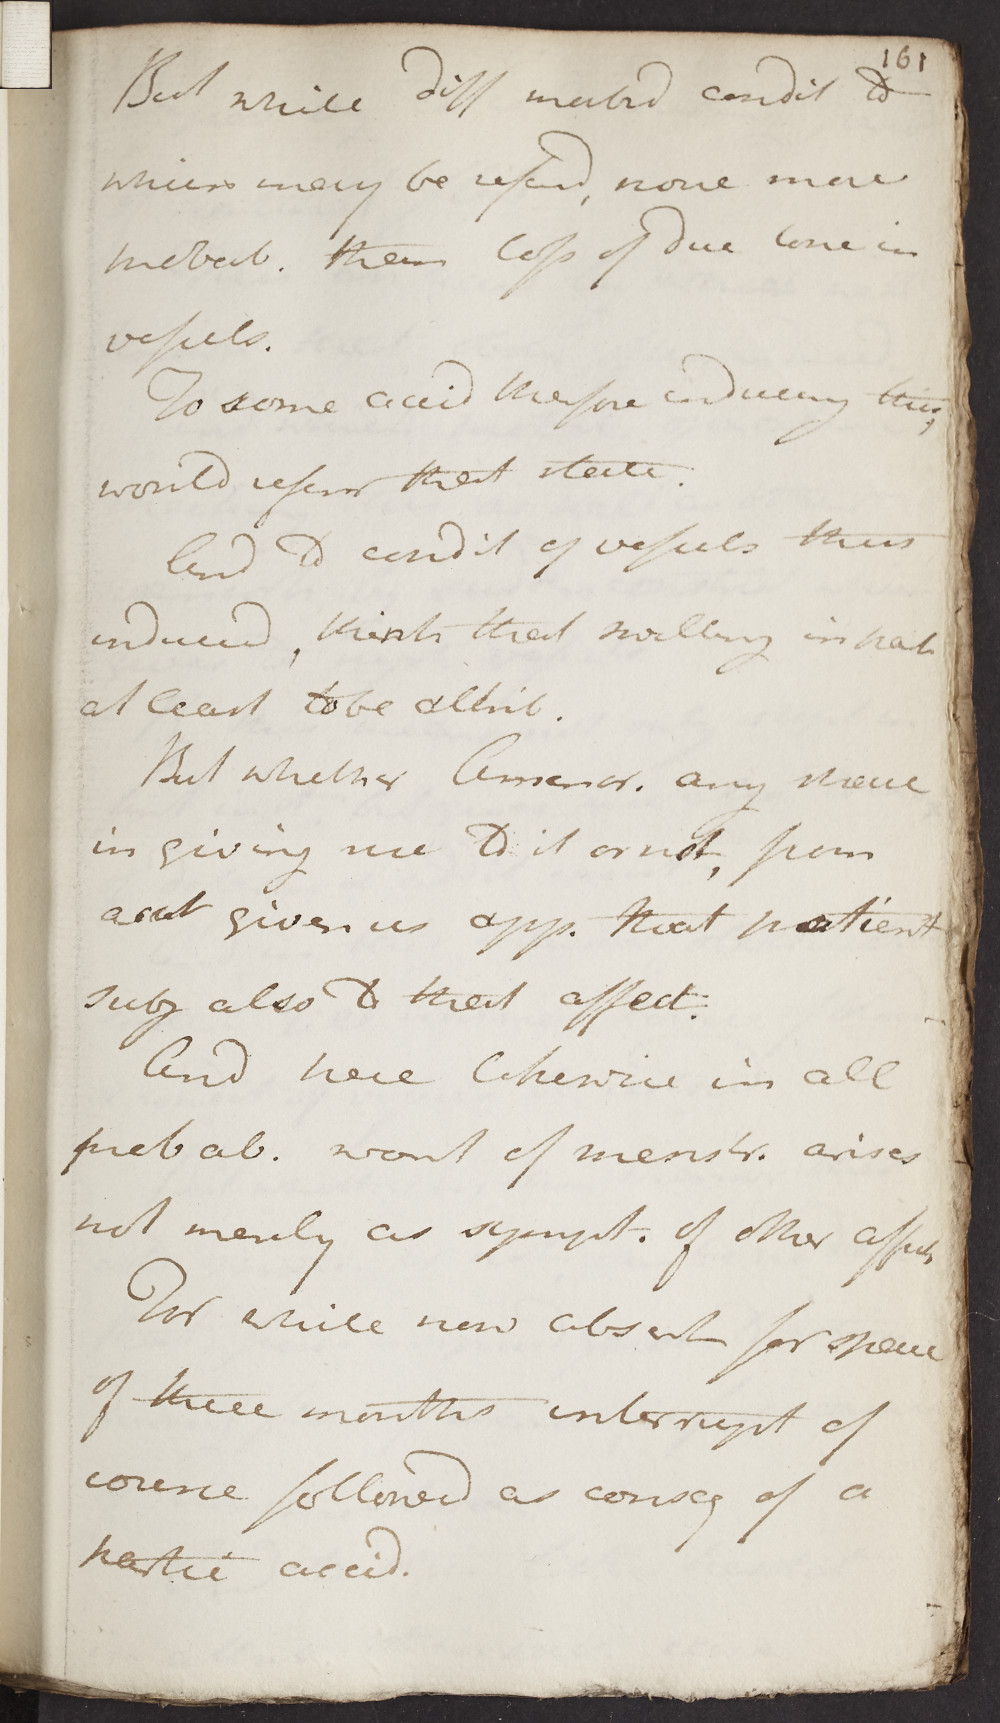 161
But while diff morbid condit to
which may be referd, none more
probab. than loss of due tone in
vessels.
To some accid therefore inducing this,
would refer that state.
And to condit of vessels thus
induced, think that swelling in part
at least to be attrib.
But whether Amenor. any share
in giving rise to it or not, from
acct given us app. that patient
subj also to that affect.
And here likewise in all
probab. want of menstr. arises
not merely as sympt. of other affect
For while now absent for space
of three months interrupt of
course followed as conseq of a
partic accid.